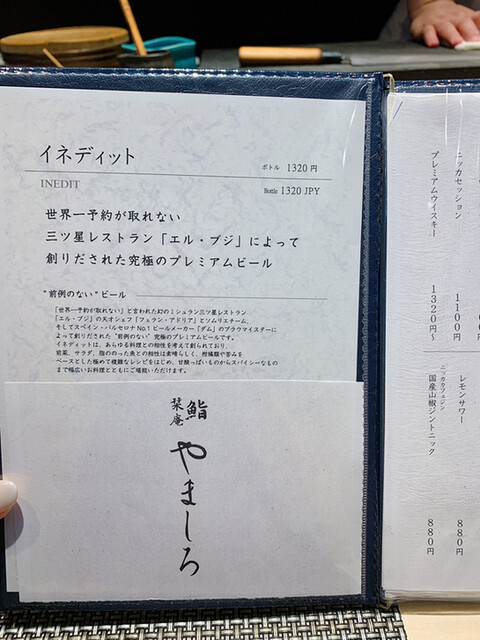 イネディット
ボトル 1320 円
INEDIT
Bottle 1320 JPY
世界一予約が取れない
三ツ星レストラン「エル・ブジ」によって
創りだされた究極のプレミアムビール
"前例のない"ビール
「世界一予約が取れない」と言われた幻のミシュラン三ツ星レストラン
「エル・ブジ」の天才シェフ「フェラン・アドリア」とソムリエチーム、
そしてスペイン・バルセロナ No.1 ビールメーカー「ダム」のブラウマイスターに
よって創りだされた"前例のない"究極のプレミアムビールです。
イネディットは、あらゆる料理との相性を考えて創られており、
前菜、サラダ、脂ののった魚との相性は素晴らしく、柑橘類や苦みを
ベースとした極めて複雑なレシピをはじめ、甘酸っぱいものからスパイシーなもの
まで幅広いお料理とともにご堪能いただけます。
鮨
栞庵
やましろ
ニッカセッション 1100円
プレミアムウイスキー 1320円~
レモンサワー 880円
ニッカカフェジン
国産山椒ジントニック 880円